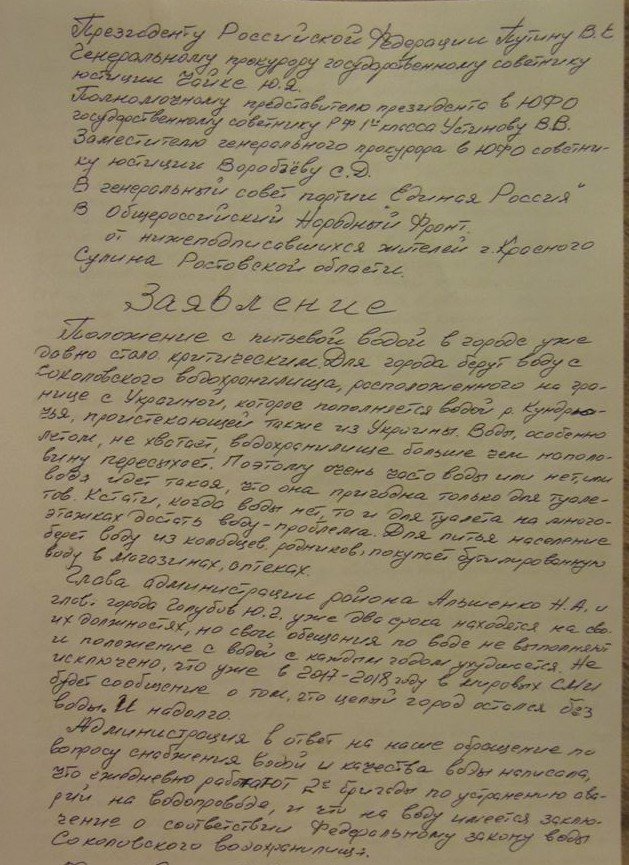 Президенту Российской Федерации Путину В.В
Генеральному прокурору государственному советнику
юстиции Чайке Ю.Я.
Полномочному представителю президента в ЮФО
государственному советнику РФ 1го класса Устинову В.В.
Заместителю генерального прокурора в ЮФО советни-
ку юстиции Воробьёву С.Д.
В генеральный совет партии "Единая Россия"
В Общероссийский Народный Фронт.
от нижеподписавшихся жителей г. Красного
Сулина Ростовской области.
Заявление
Положение с питьевой водой в городе уже
давно стало критическим. Для города берут воду с
Соколовского водохранилища, расположенного на гра-
нице с Украиной, которое пополняется водой р. Кундрю-
чья, проистекающей также из Украины. Воды, особенно
летом, не хватает, водохранилище больше чем наполо-
вину пересыхает. Поэтому очень часто воды или нет, или
вода идет такая, что она пригодна только для туале-
тов. Кстати, когда воды нет, то и для туалета на много-
этажках достать воду-проблема. Для питья население
берет воду из колодцев, родников, покупает бутилированную
воду в магазинах, аптеках.
Глава администрации района Альшенко Н.А. и
глава города Голубов Ю.Г, уже два срока находятся на сво-
их должностях, но свои обещания по воде не выполняют
и положение с водой с каждым годом ухудшается. Не
исключено, что уже в 2017-2018 году в мировых СМИ
будет сообщение о том, что целый город остался без
воды. И надолго.
Администрация в ответ на наше обращение по
вопросу снабжения водой и качества воды написала,
что ежедневно работают 2е бригады по устранению ава-
рий на водопроводе, и что на воду имеется заклю-
чение о соответствии Федеральному закону воды
Соколовского водохранилища.